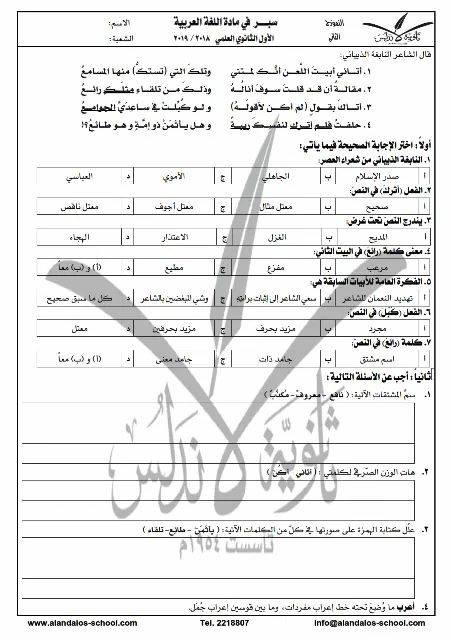 سبـر في مادة اللغة العربية
الأول الثانوي العلمي ٢٠١٨ / ٢٠١٩
النموذج الثاني
الاسم:
الشعبة:
ثانوية الأندلس
قال الشاعر النابغة الذبياني:
١. أتـاني أبيـتَ اللّعـن أنّـك لمـتني وتلـك التي (تستكُّ) منها المسامعُ
٢. مقالـةُ أن قـد قلـتَ سـوفَ أنالُـهُ وذلـكَ مـن تلقـاءِ مثلِـكَ رائـعُ
٣. أتـاكَ بقـولٍ (لم أكـن لأقولَـهُ) ولـو كُبِّلـتْ في سـاعديَّ الجوامـعُ
٤. حلفـتُ فلـم أتـرك لنفسـكَ ريبـةً وهـل يـأثمَنْ ذو إمّـةٍ وهـو طـائعُ؟!
أولاً: اختر الإجابة الصحيحة فيما يأتي:
١. النابغة الذبياني من شعراء العصر:
أ صدر الإسلام ب الجاهلي ج الأموي د العباسي
٢. الفعل (أترك) في النص:
أ صحيح ب معتل مثال ج معتل أجوف د معتل ناقص
٣. يندرج النصّ تحت غرض:
أ المديح ب الغزل ج الاعتذار د الهجاء
٤. معنى كلمة (رائع) في البيت الثاني:
أ مرعب ب مفزع ج مطيع د (أ) و (ب) معاً
٥. الفكرة العامة للأبيات السابقة هي:
أ تهديد النعمان للشاعر ب سعي الشاعر إلى إثبات براءته ج وشي المبغضين بالشاعر د كل ما سبق صحيح
٦. الفعل (كُبّل) في النص:
أ مجرد ب مزيد بحرف ج مزيد بحرفين د معتل
٧. كلمة (رائع) في النص:
أ اسم مشتق ب جامد ذات ج جامد معنى د (أ) و (ب) معاً
ثانياً: أجب عن الأسئلة التالية:
١. سمِّ المشتقات الآتية: ( نافع - معروف - مُكتَب )
٢. هات الوزن الصرفي لكلمتي : ( أتاني - أكُن )
٢. علّل كتابة الهمزة على صورتها في كلّ من الكلمات الآتية: ( يأثمَنْ - طائع - تلقاء )
٤. أعرب ما وُضعَ تحته خط إعراب مفردات، وما بين قوسين إعراب جُمل.
ثانوية الأندلس
تأسست ١٩٥٤م
www.alandalos-school.com Tel. 2218807 info@alandalos-school.com